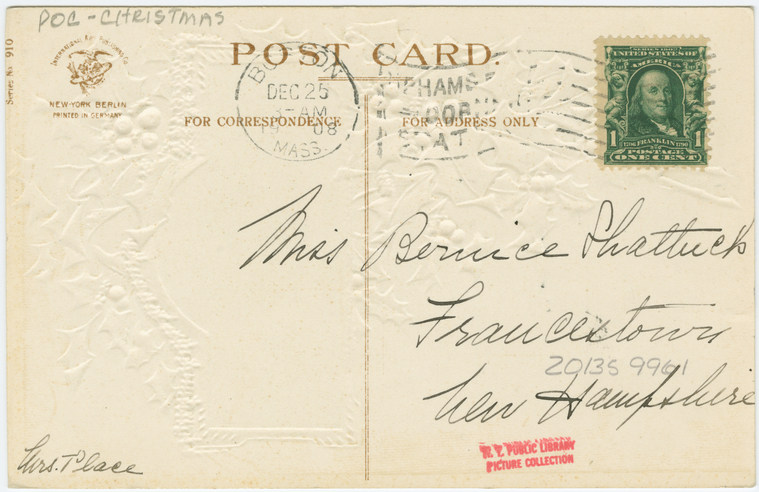 POC - CHRISTMAS
Series No 910
INTERNATIONAL ART PUBLISHING CO.
NEW-YORK BERLIN
PRINTED IN GERMANY
POST CARD.
FOR CORRESPONDENCE
FOR ADDRESS ONLY
BOSTON
DEC 25
AM
19 08
MASS.
PHAMS
CORN
AT
SERIES 1902
UNITED STATES OF
AMERICA
1 1706 FRANKLIN 1790 1
POSTAGE
ONE CENT
Miss Bernice Shattuck
Francestown
New Hampshire
2013S 9961
N. Y. PUBLIC LIBRARY
PICTURE COLLECTION
Mrs. Place